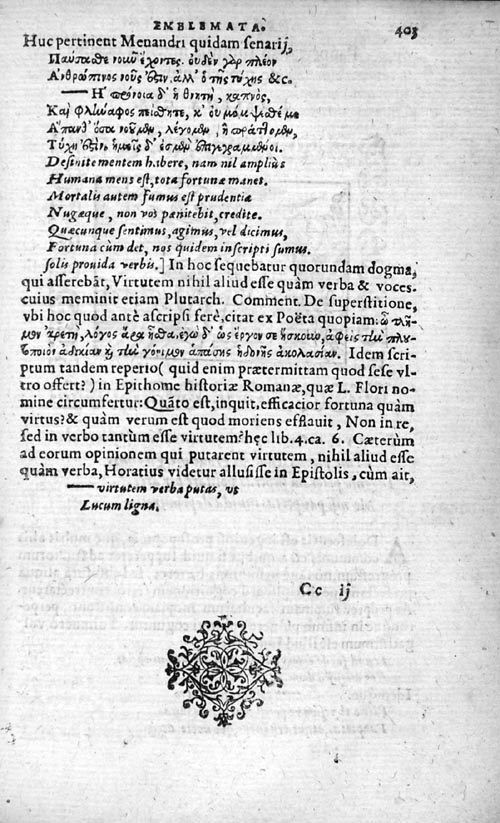 EMBLEMATA. 403
Huc pertinent Menandri quidam senarij,
Παύσασθε νοωῦ ἔχοντες. οὐδὲν γὰρ πλέον
Ανθρώπινος νοῦς ὅστιν. ἀλλ' ὁ τῆς τύχης &c.
— Η πρόνοια δ' ἡ θνητὴ, καπνὸς,
Καὶ φλώαφος πείσθητε, κ' οὐ
Απανθ' ὅσα νοοῦμεν, λέγομεν, ἢ πράττομεν,
Τύχη
Desinite mentem habere, nam nil amplius
Humana mens est, tota fortunæ manet.
Mortalis autem fumus est prudentia
Nugæque, non vos pænitebit, credite.
Quæcunque sentimus, agimus, vel dicimus,
Fortuna cùm det, nos quidem inscripti sumus.
solis prouida verbis.] In hoc sequebatur quorundam dogma,
qui asserebāt, Virtutem nihil aliud esse quàm verba & voces.
cuius meminit etiam Plutarch. Comment. De superstitione,
vbi hoc quod antè ascripsi ferè, citat ex Poëta quopiam: ὦ τλῆ-
μον ἀρετὴ, λόγος ἄρα ἦσθα, ἐγὼ δ' ὡς ἔργον σε ἤσκουν, ἀφεὶς τὴν πλου-
τοποιὸν ἀδικίαν καὶ τὴν γόνιμον ἁπάσης ἡδονῆς ἀκολασίαν. Idem scri-
ptum tandem reperio (quid enim prætermittam quod sese vl-
tro offert?) in Epithome historiæ Romanæ, quæ L. Flori no-
mine circumfertur: Quāto est, inquit, efficacior fortuna quàm
virtus? & quàm verum est quod moriens efflauit, Non in re,
sed in verbo tantùm esse virtutem? hęc lib. 4. ca. 6. Cæterùm
ad eorum opinionem qui putarent virtutem, nihil aliud esse
quàm verba, Horatius videtur allusisse in Epistolis, cùm ait,
— virtutem verba putas, vt
Lucum ligna.
Cc ij